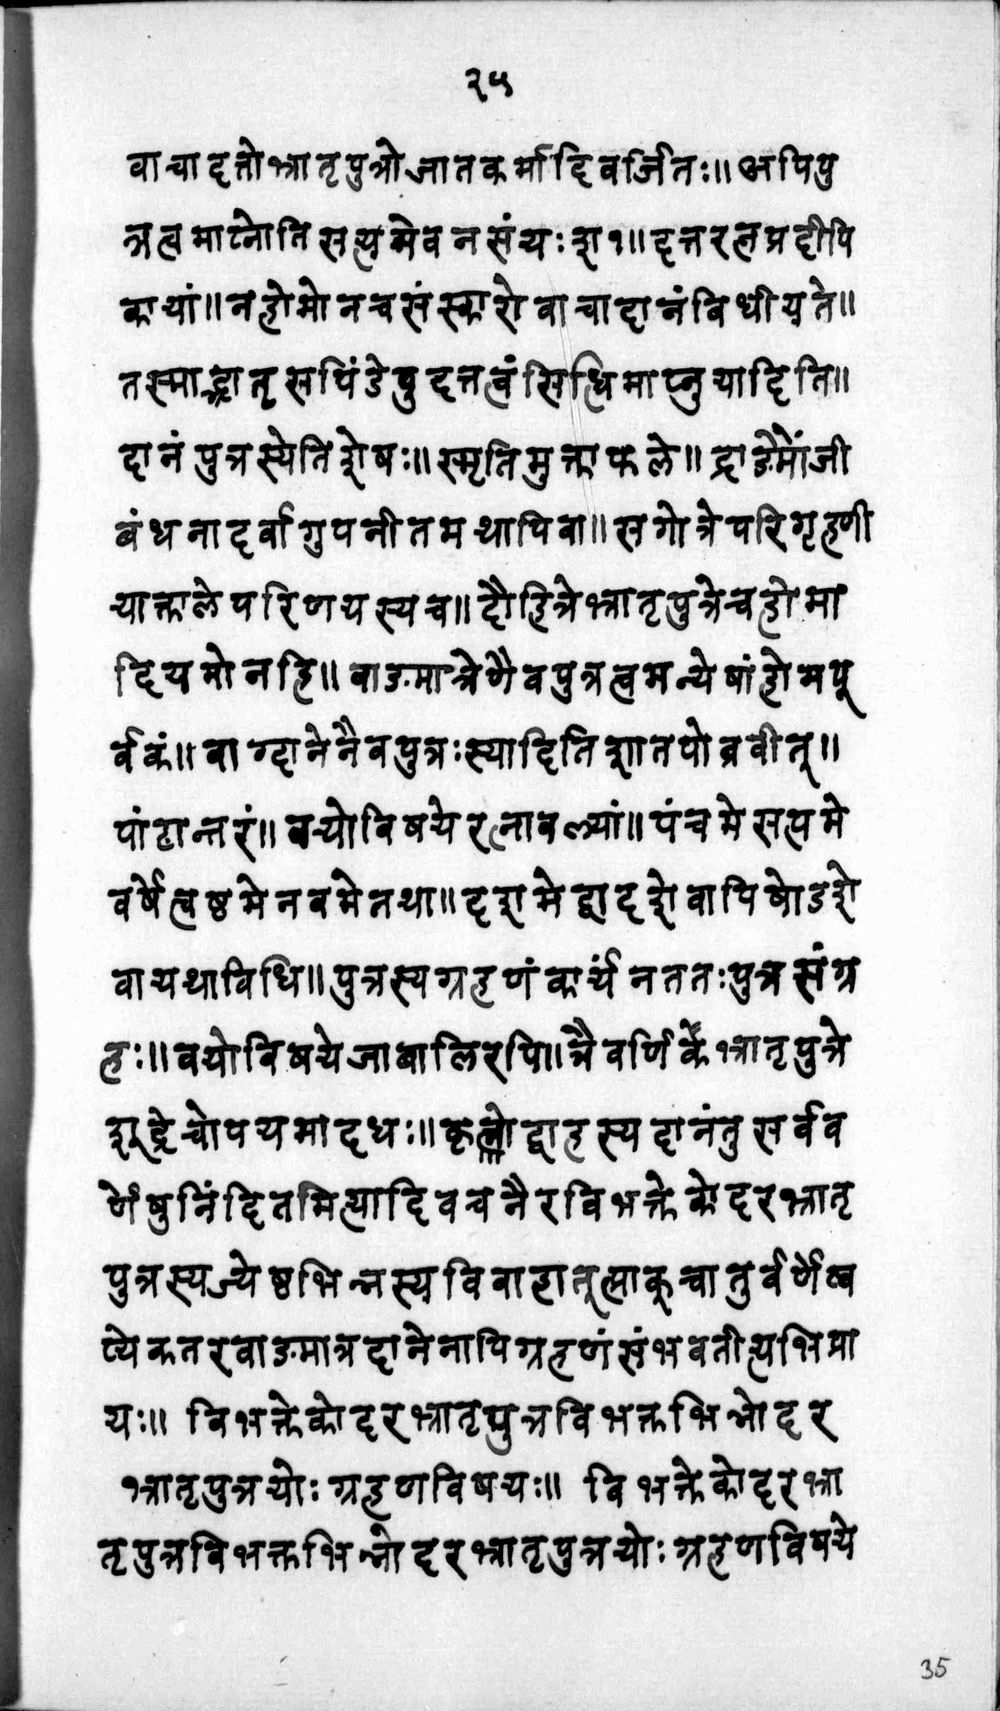 २५
वाचादत्तोभ्रातृपुत्रोजातकर्मादिवर्जितः॥ अपिपु
त्रत्वमाप्नोति सत्यमेव नसंयः श १॥ दत्तरत्नप्रदीपि
कायां॥ नहोमो नच संस्कारो वाचादानं विधीयते॥
तस्माद्भ्रातृसपिंडेषु दत्तत्वं सिधिमाप्नुयादिति॥
दानं पुत्रस्येति शेषः॥ स्मृतिमुक्ताफले॥ द्राङैमौंजी
बंधनादर्वागुपनीतमथापिवा॥ सगोत्रे परिगृह्णी
यात्काले परिणयस्यच॥ दौहित्रेभ्रातृपुत्रेचहोमा
दियमो नहि॥ वाङमात्रेणैवपुत्रत्वमन्येषांहोमपू
र्वकं॥ वाग्दानेनैवपुत्रःस्यादितिशातपोब्रवीत्॥
पांठान्तरं॥ वयोविषये रत्नावल्यां॥ पंचमे सप्तमे
वर्षेत्वष्ठमे नवमेतथा॥ दशमे द्वादशे वापि षोडशे
वायथाविधि॥ पुत्रस्यग्रहणं कार्यं नततःपुत्रसंग्र
हः॥ वयोविषये जाबालिरपि॥ त्रैवर्णिके भ्रातृपुत्रे
शूद्रेचोपयमादधः॥ कृतोद्वाहस्यदानंतु सर्वव
र्णेषुनिंदितमित्यादिवचनैरविभक्तेकोदरभ्रातृ
पुत्रस्यज्येष्ठभिन्नस्य विवाहात्प्राक् चातुर्वर्णेष्व
प्येकतरवाङमात्रदानेनापिग्रहणंसंभवतीत्यभिप्रा
यः॥ विभक्तेकोदरभ्रातृपुत्रविभक्तभिन्नोदर
भ्रातृपुत्रयोः ग्रहणविषयः॥ विभक्तेकोदरभ्रा
तृपुत्रविभक्तभिन्नोदरभ्रातृपुत्रयोः ग्रहणविषये
35